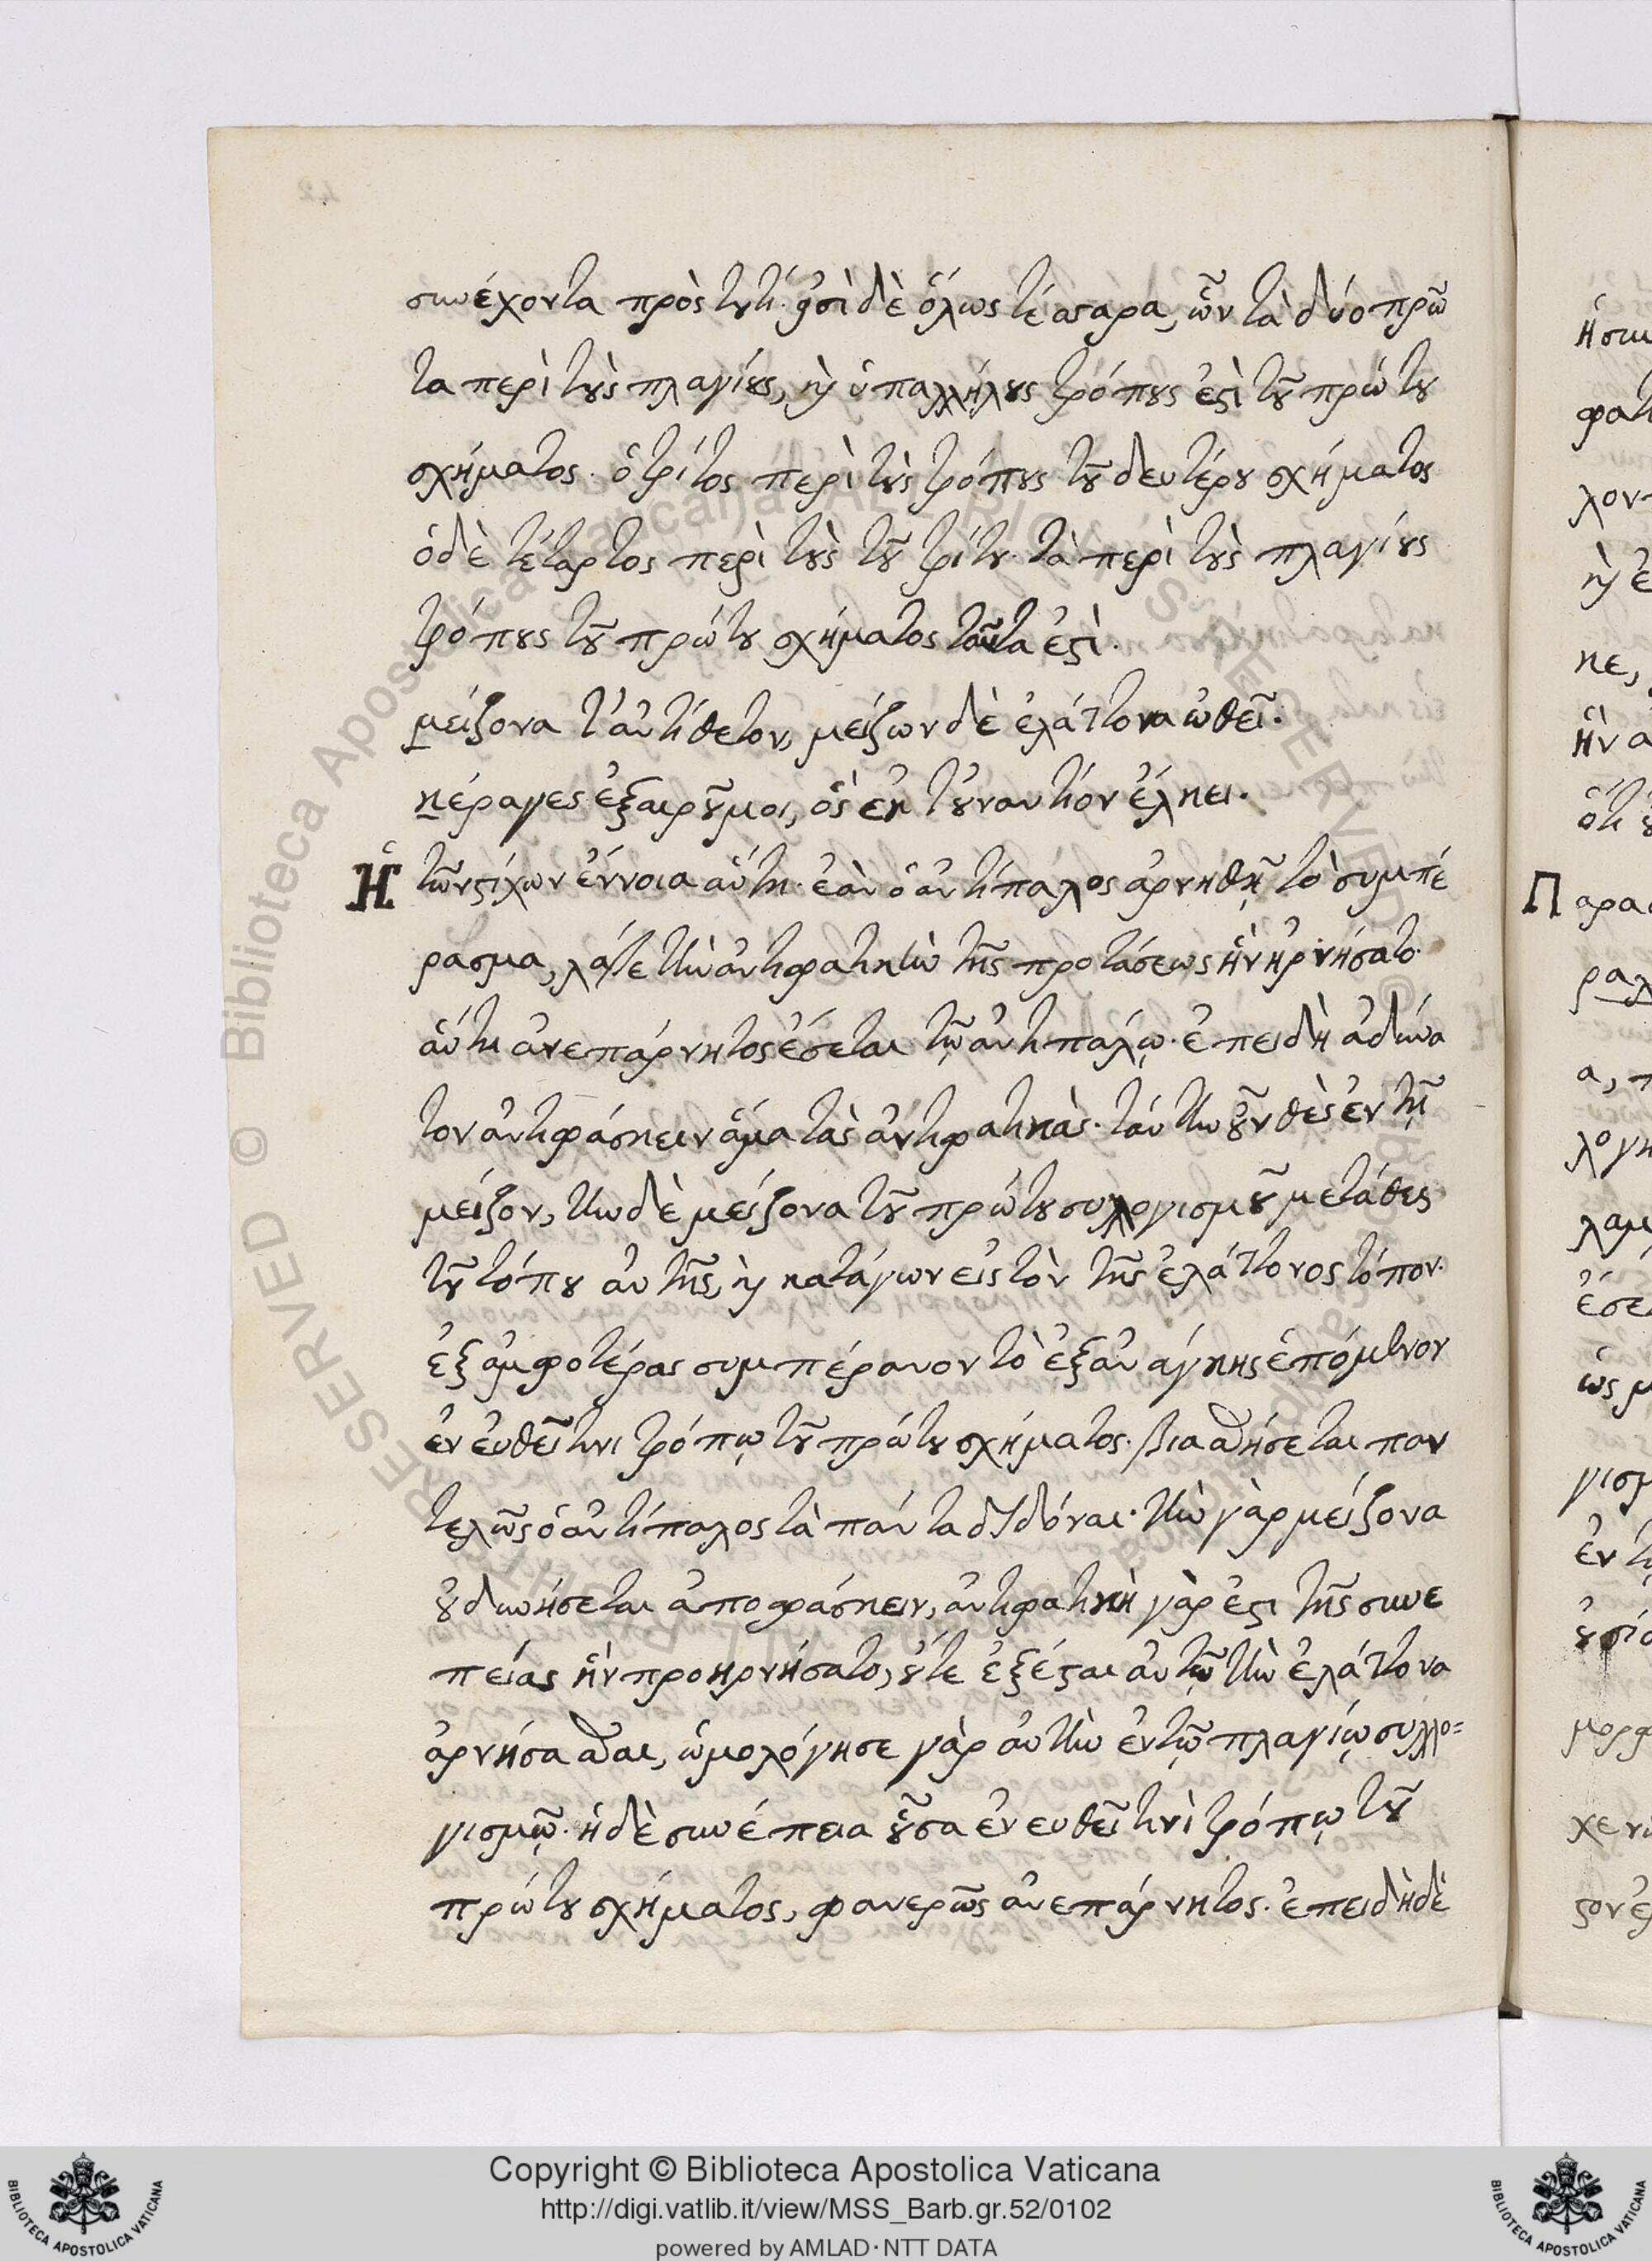 συνέχοντα πρὸς τουτί. εἰσὶ δὲ ὅλως τέσσαρα, ὧν τὰ δύο πρῶ
τα περὶ τοὺς πλαγίους, καὶ ὑπαλλήλους τρόπους ἐστὶ τοῦ πρώτου
σχήματος. ὁ τρίτος περὶ τοὺς τρόπους τοῦ δευτέρου σχήματος
ὁ δὲ τέταρτος περὶ τοὺς τοῦ τρίτου. τὰ περὶ τοὺς πλαγίους
τρόπους τοῦ πρώτου σχήματος ταῦτα ἐστὶ.
μείζονα τ' ἀντίθετον, μείζων δὲ ἐλάττονα ὠθεῖ.
κέραγες ἐξαιροῦμοι, ὃς ἐκ τοὐναντίον ἕλκει.
Ἡ τῶν στίχων ἔννοια αὕτη. ἐὰν ὁ ἀντίπαλος ἀρνηθῇ τὸ συμπέ
ρασμα, λάβε τὴν ἀντιφατικὴν τῆς προτάσεως ἣν ἠρνήσατο.
αὕτη ἀνεπάρνητος ἔσεται τῷ ἀντιπάλῳ. ἐπειδὴ ἀδύνα
τον ἀντιφάσκειν ἅμα τὰς ἀντιφατικὰς. ταύτην οὖν θὲς ἐν τῇ
μείζον, τὴν δὲ μείζονα τοῦ πρώτου συλλογισμοῦ μετάθες
τοῦ τόπου αὐτῆς, καὶ κατάγων εἰς τὸν τῆς ἐλάττονος τόπον.
ἐξ ἀμφοτέρας συμπέρανον τὸ ἐξ ἀνάγκης ἑπόμενον
ἐν εὐθεῖ τινι τρόπῳ τοῦ πρώτου σχήματος. βιασθήσεται παν
τελῶς ὁ ἀντίπαλος τὰ πάντα διδόναι. τὴν γὰρ μείζονα
οὐ δυνήσεται ἀποφάσκειν, ἀντιφατικὴ γὰρ ἐστι τῆς συνε
πείας ἣν προηρνήσατο, οὔτε ἐξέσται αὐτῷ τὴν ἐλάττονα
ἀρνήσασθαι, ὡμολόγησε γὰρ αὐτὴν ἐν τῷ πλαγίῳ συλλο=
γισμῷ. ἡ δὲ συνέπεια οὖσα ἐν εὐθεῖ τινὶ τρόπῳ τοῦ
πρώτου σχήματος, φανερῶς ἀνεπάρνητος. ἐπειδὴ δὲ
Copyright © Biblioteca Apostolica Vaticana
http://digi.vatlib.it/view/MSS_Barb.gr.52/0102
powered by AMLAD·NTT DATA